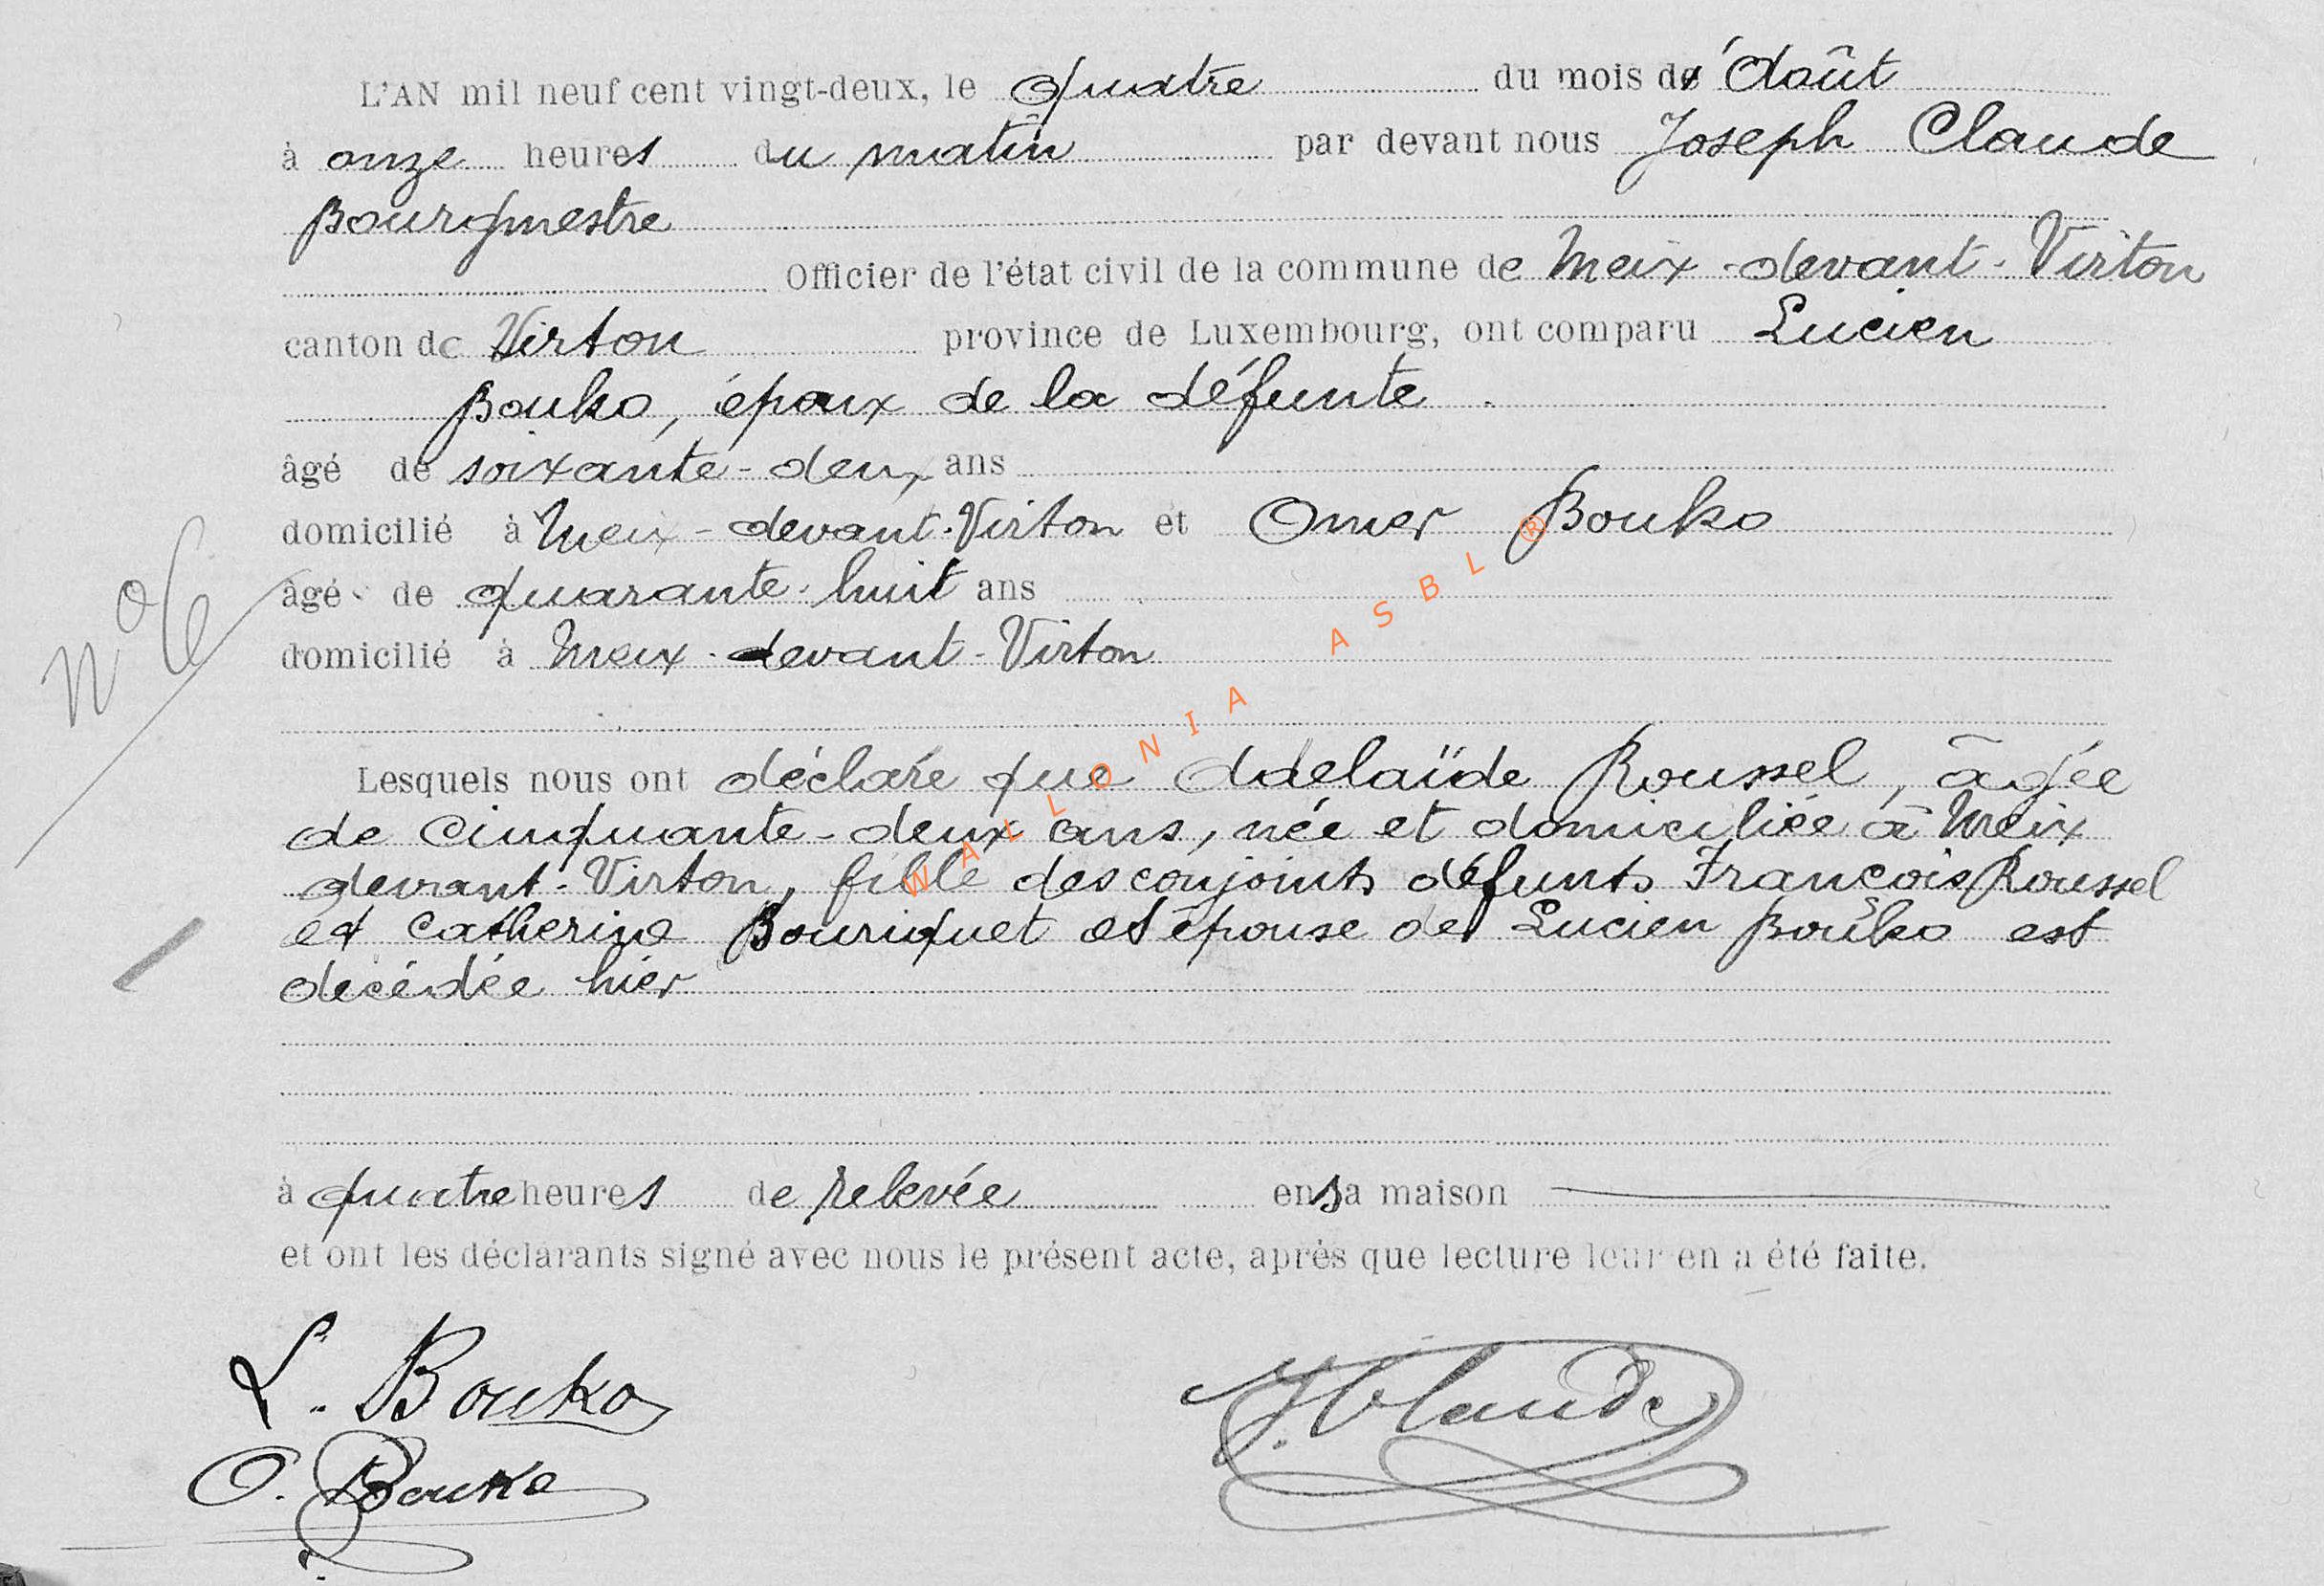 L'AN mil neuf cent vingt-deux, le quatre du mois d'Août
à onze heures du matin par devant nous Joseph Claude
Bourgmestre
Officier de l'état civil de la commune de Meix-devant-Virton
canton de Virton province de Luxembourg, ont comparu Lucien
Bouko, époux de la défunte.
âgé de soixante-deux ans
domicilié à Meix-devant-Virton et Omer Bouko
âgé de quarante-huit ans
domicilié à Meix-devant-Virton
N° 6
Lesquels nous ont déclaré que Adelaïde Roussel, âgée
de cinquante-deux ans, née et domiciliée à Meix
devant-Virton, fille des conjoints défunts François Roussel
et Catherine Bouriquet et épouse de Lucien Bouko est
décédée hier
à quatre heures de relevée en sa maison
et ont les déclarants signé avec nous le présent acte, après que lecture leur en a été faite.
L. Bouko
J. Claude
O. Bouko
WALLONIA ASBL ®